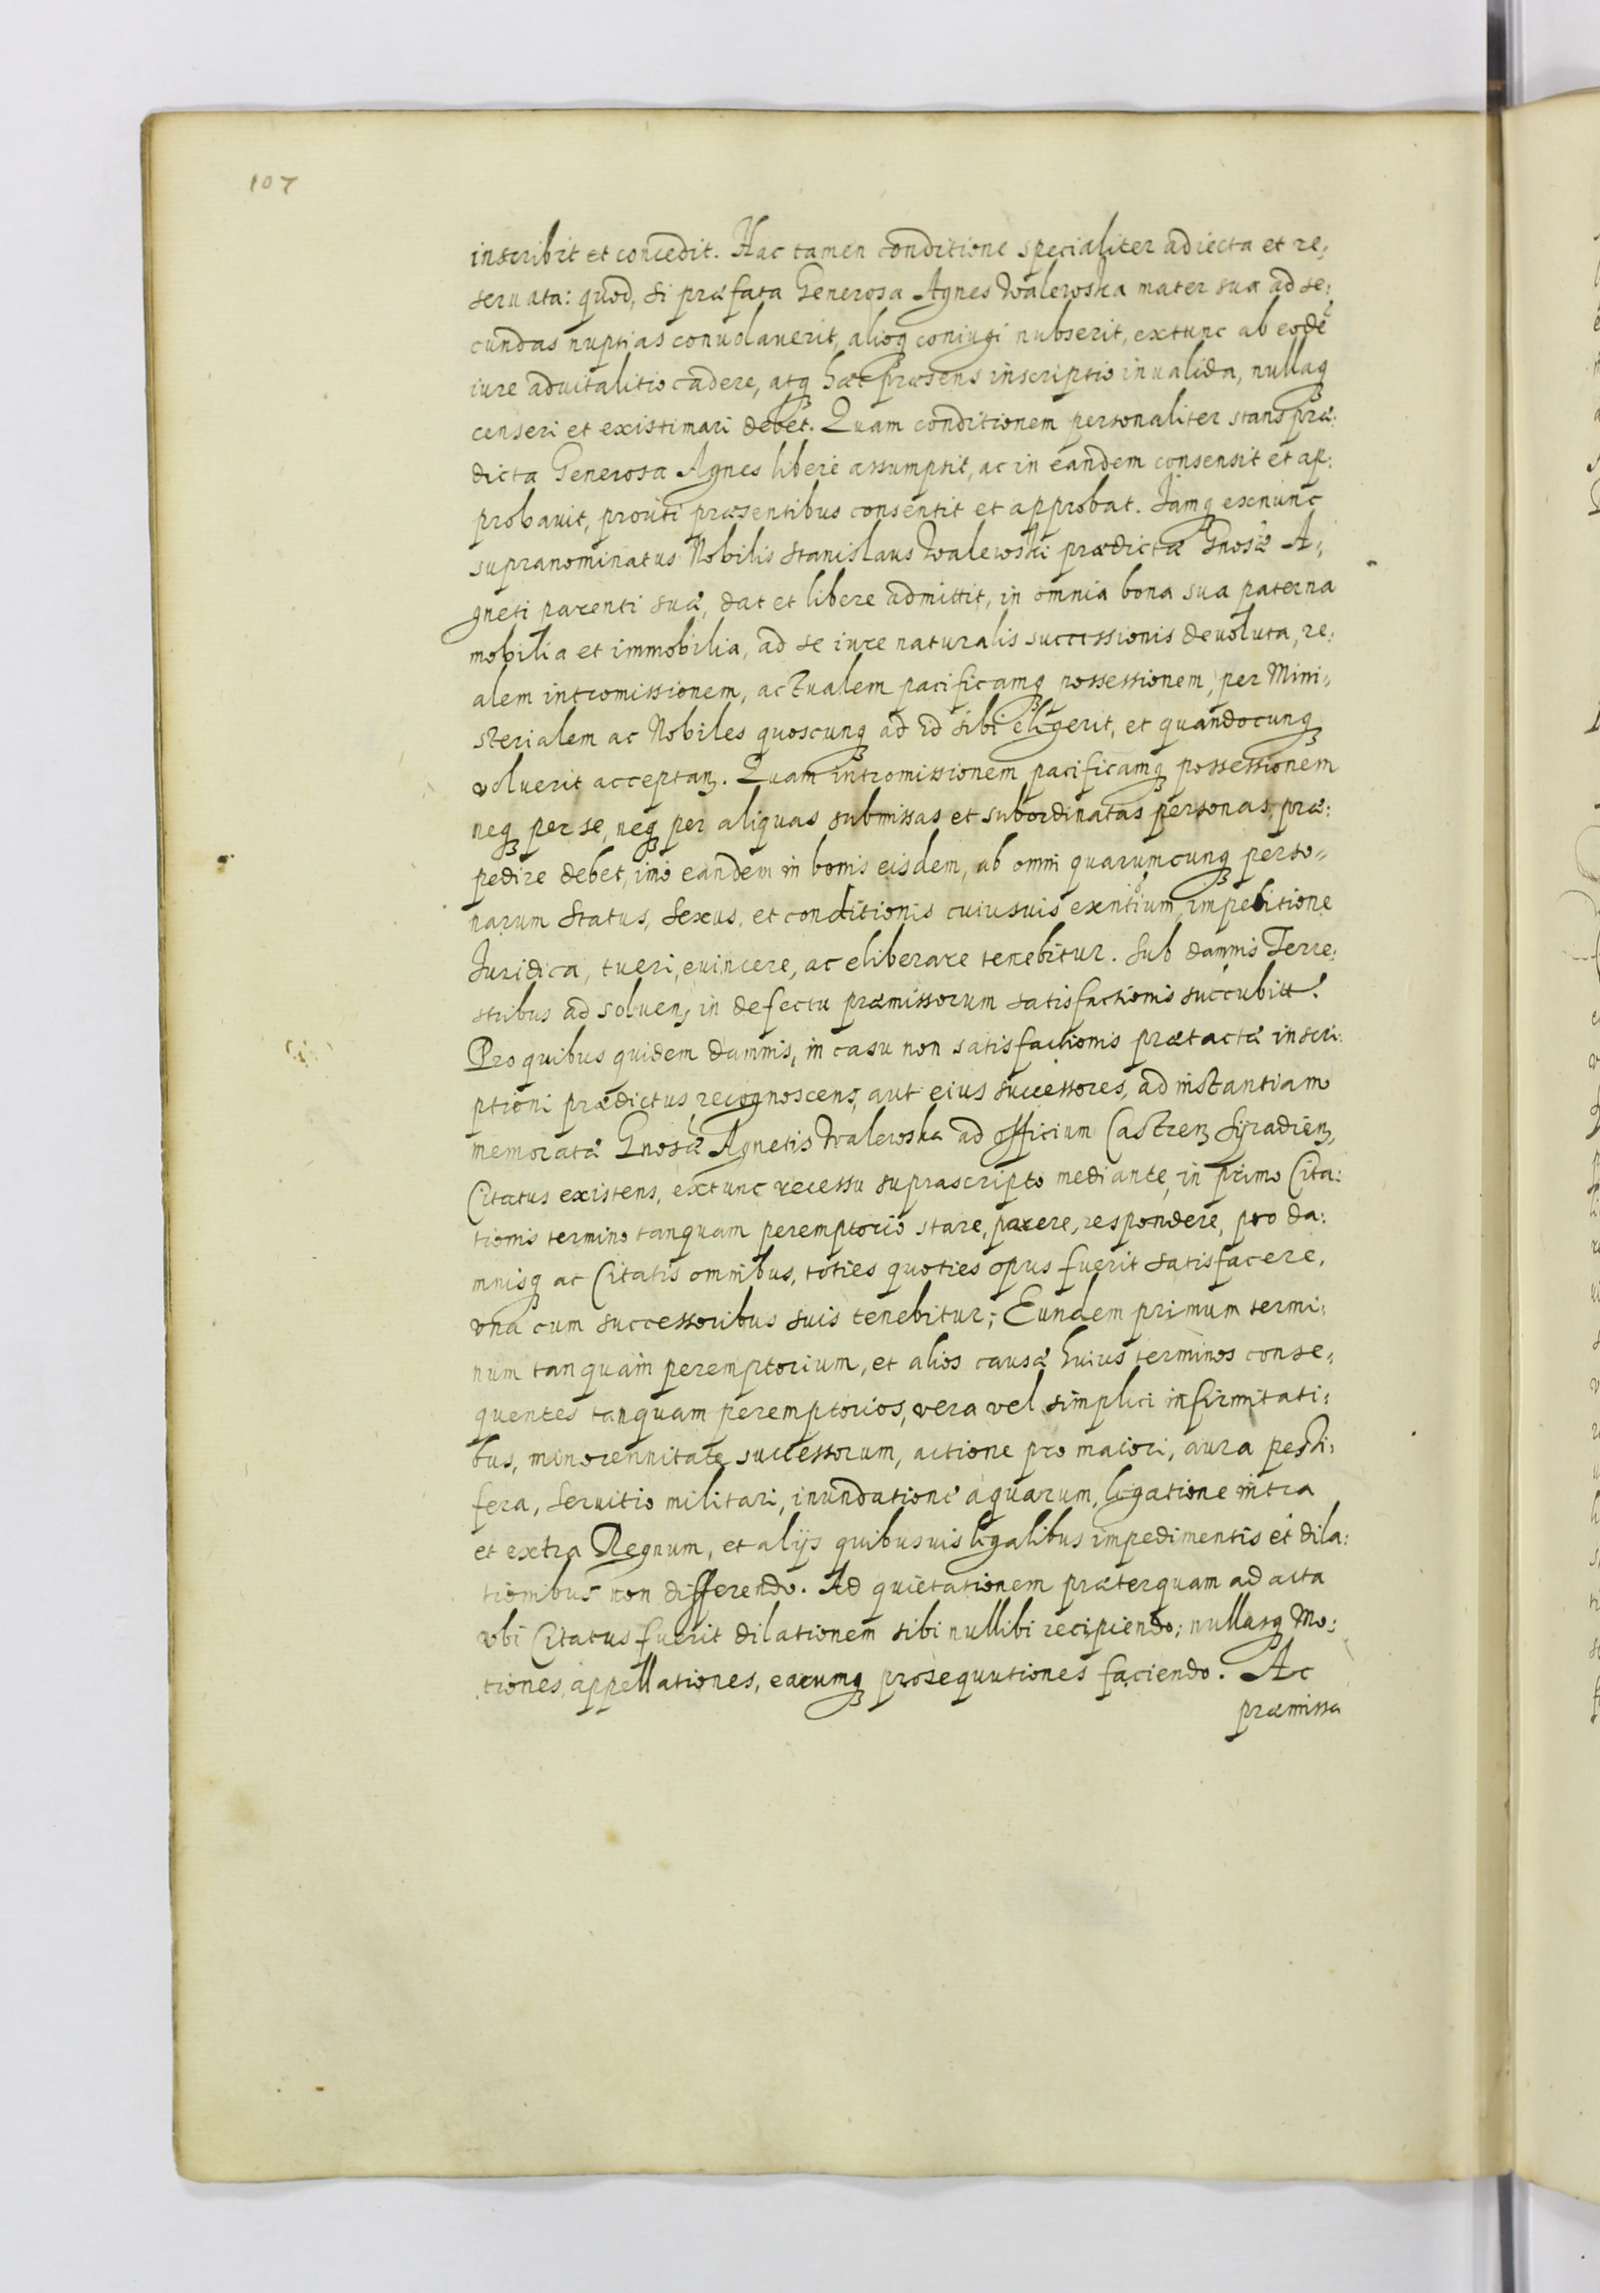 107
inscribit et concedit. Hac tamen conditione specialiter adiecta et re,
seruata: quod, si præfata Generosa Agnes Walewska mater sua ad se,
cundas nuptias conuolauerit, alioq coniugi nubserit, extunc ab eodē
iure aduitalitio cadere, atq hæc præsens inscriptio inualida, nullaq
censeri et existimari debet. Quam conditionem personaliter stans præ:
dicta Generosa Agnes libere assumpsit, ac in eandem consensit et ap:
probauit, prouti præsentibus consentit et approbat. Iamq exnunc
supranominatus Nobilis Stanislaus Walewski prædictæ Gnosæ A,
gneti parenti suæ, dat et libere admittit, in omnia bona sua paterna
mobilia et immobilia, ad se iure naturalis successionis deuoluta, re,
alem intromissionem, actualem pacificamq possessionem, per Mini,
sterialem ac Nobiles quoscunq ad id sibi eligerit, et quandocunq
voluerit acceptanꝫ. Quam intromissionem pacificamq possessionem
neq per se, neq per aliquas submissas et subordinatas personas, præ:
pedire debet, imo eandem in bonis eisdem, ab omni quarumcunq perso,
narum status, sexus, et conditionis cuiusuis exntium, impeditione
Iuridica, tueri, euincere, ac eliberare tenebitur. Sub damnis Terre:
stribus ad soluenꝫ in defectu præmissorum satisfactionis succubitt.
Pro quibus quidem damnis, in casu non satisfactionis prætactæ inscri:
ptioni prædictus recognoscens, aut eius successores, ad instantiam
memoratæ Gnosæ Agnetis Walewska ad officium Castrenꝫ Syradienꝫ,
Citatus existens, extunc recessu suprascripto mediante, in primo Cita:
tionis termino tanquam peremptorio stare, parere, respondere, pro da:
mnisq ac Citatis omnibus, toties quoties opus fuerit satisfacere,
vna cum successoribus suis tenebitur; Eundem primum termi:
num tanquam peremptorium, et alios causæ huius terminos conse,
quentes tanquam peremptorios, vera vel simplici infirmitati:
bus, minorennitate successorum, actione pro maiori, aura pesti,
fera, seruitio militari, inundatione aquarum, legatione intra
et extra Regnum, et alijs quibusuis legalibus impedimentis et dila:
tionibus non differendo. Ad quietationem præterquam ad acta
vbi Citatus fuerit dilationem sibi nullibi recipiendo; nullasq Mo:
tiones, appellationes, earumq prosequutiones faciendo. Ac
præmissa